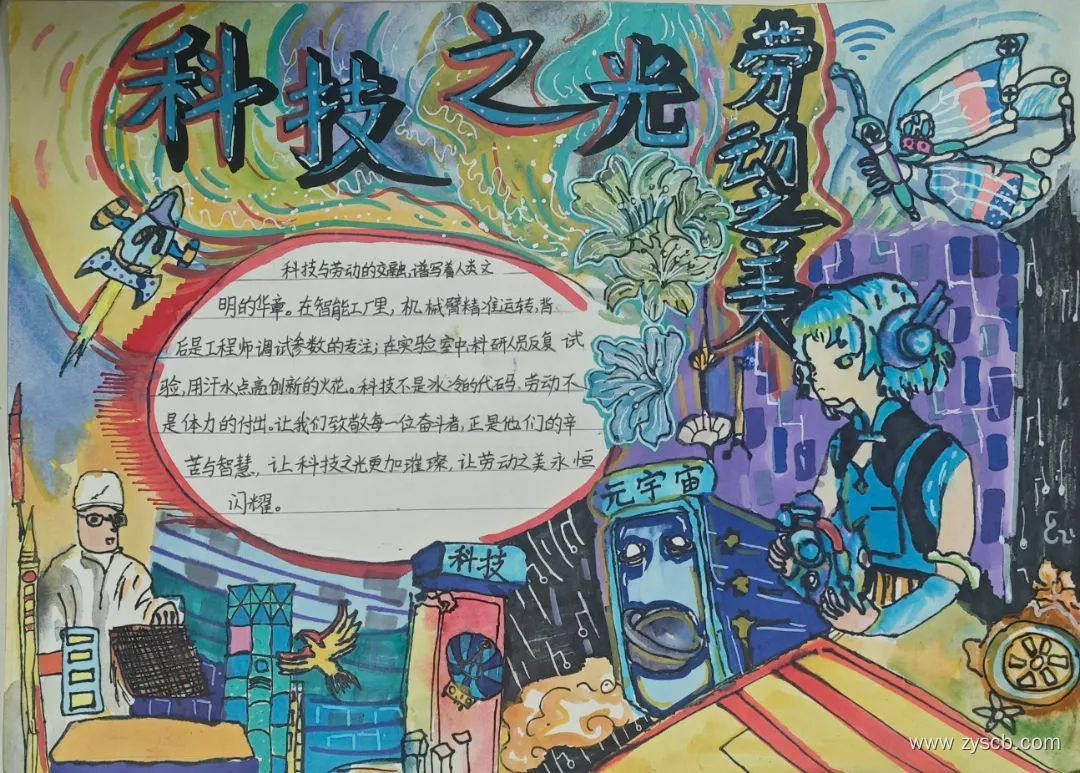 科技之光
劳动之美
科技与劳动的交融,谱写着人类文
明的华章。在智能工厂里,机械臂精准运转,背
后是工程师调试参数的专注;在实验室中,科研队员反复试
验,用汗水点亮创新的火花。科技不是冰冷的代码,劳动不
是体力的付出。让我们致敬每一位奋斗者,正是他们的辛
苦与智慧,让科技之光更加璀璨,让劳动之美永恒
闪耀。
元宇宙
科技
www.zyscb.com